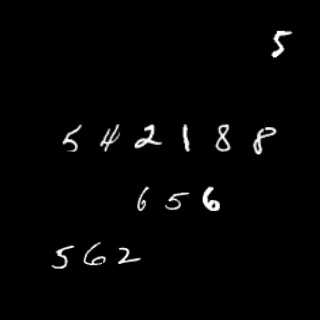 5
542188
656
562